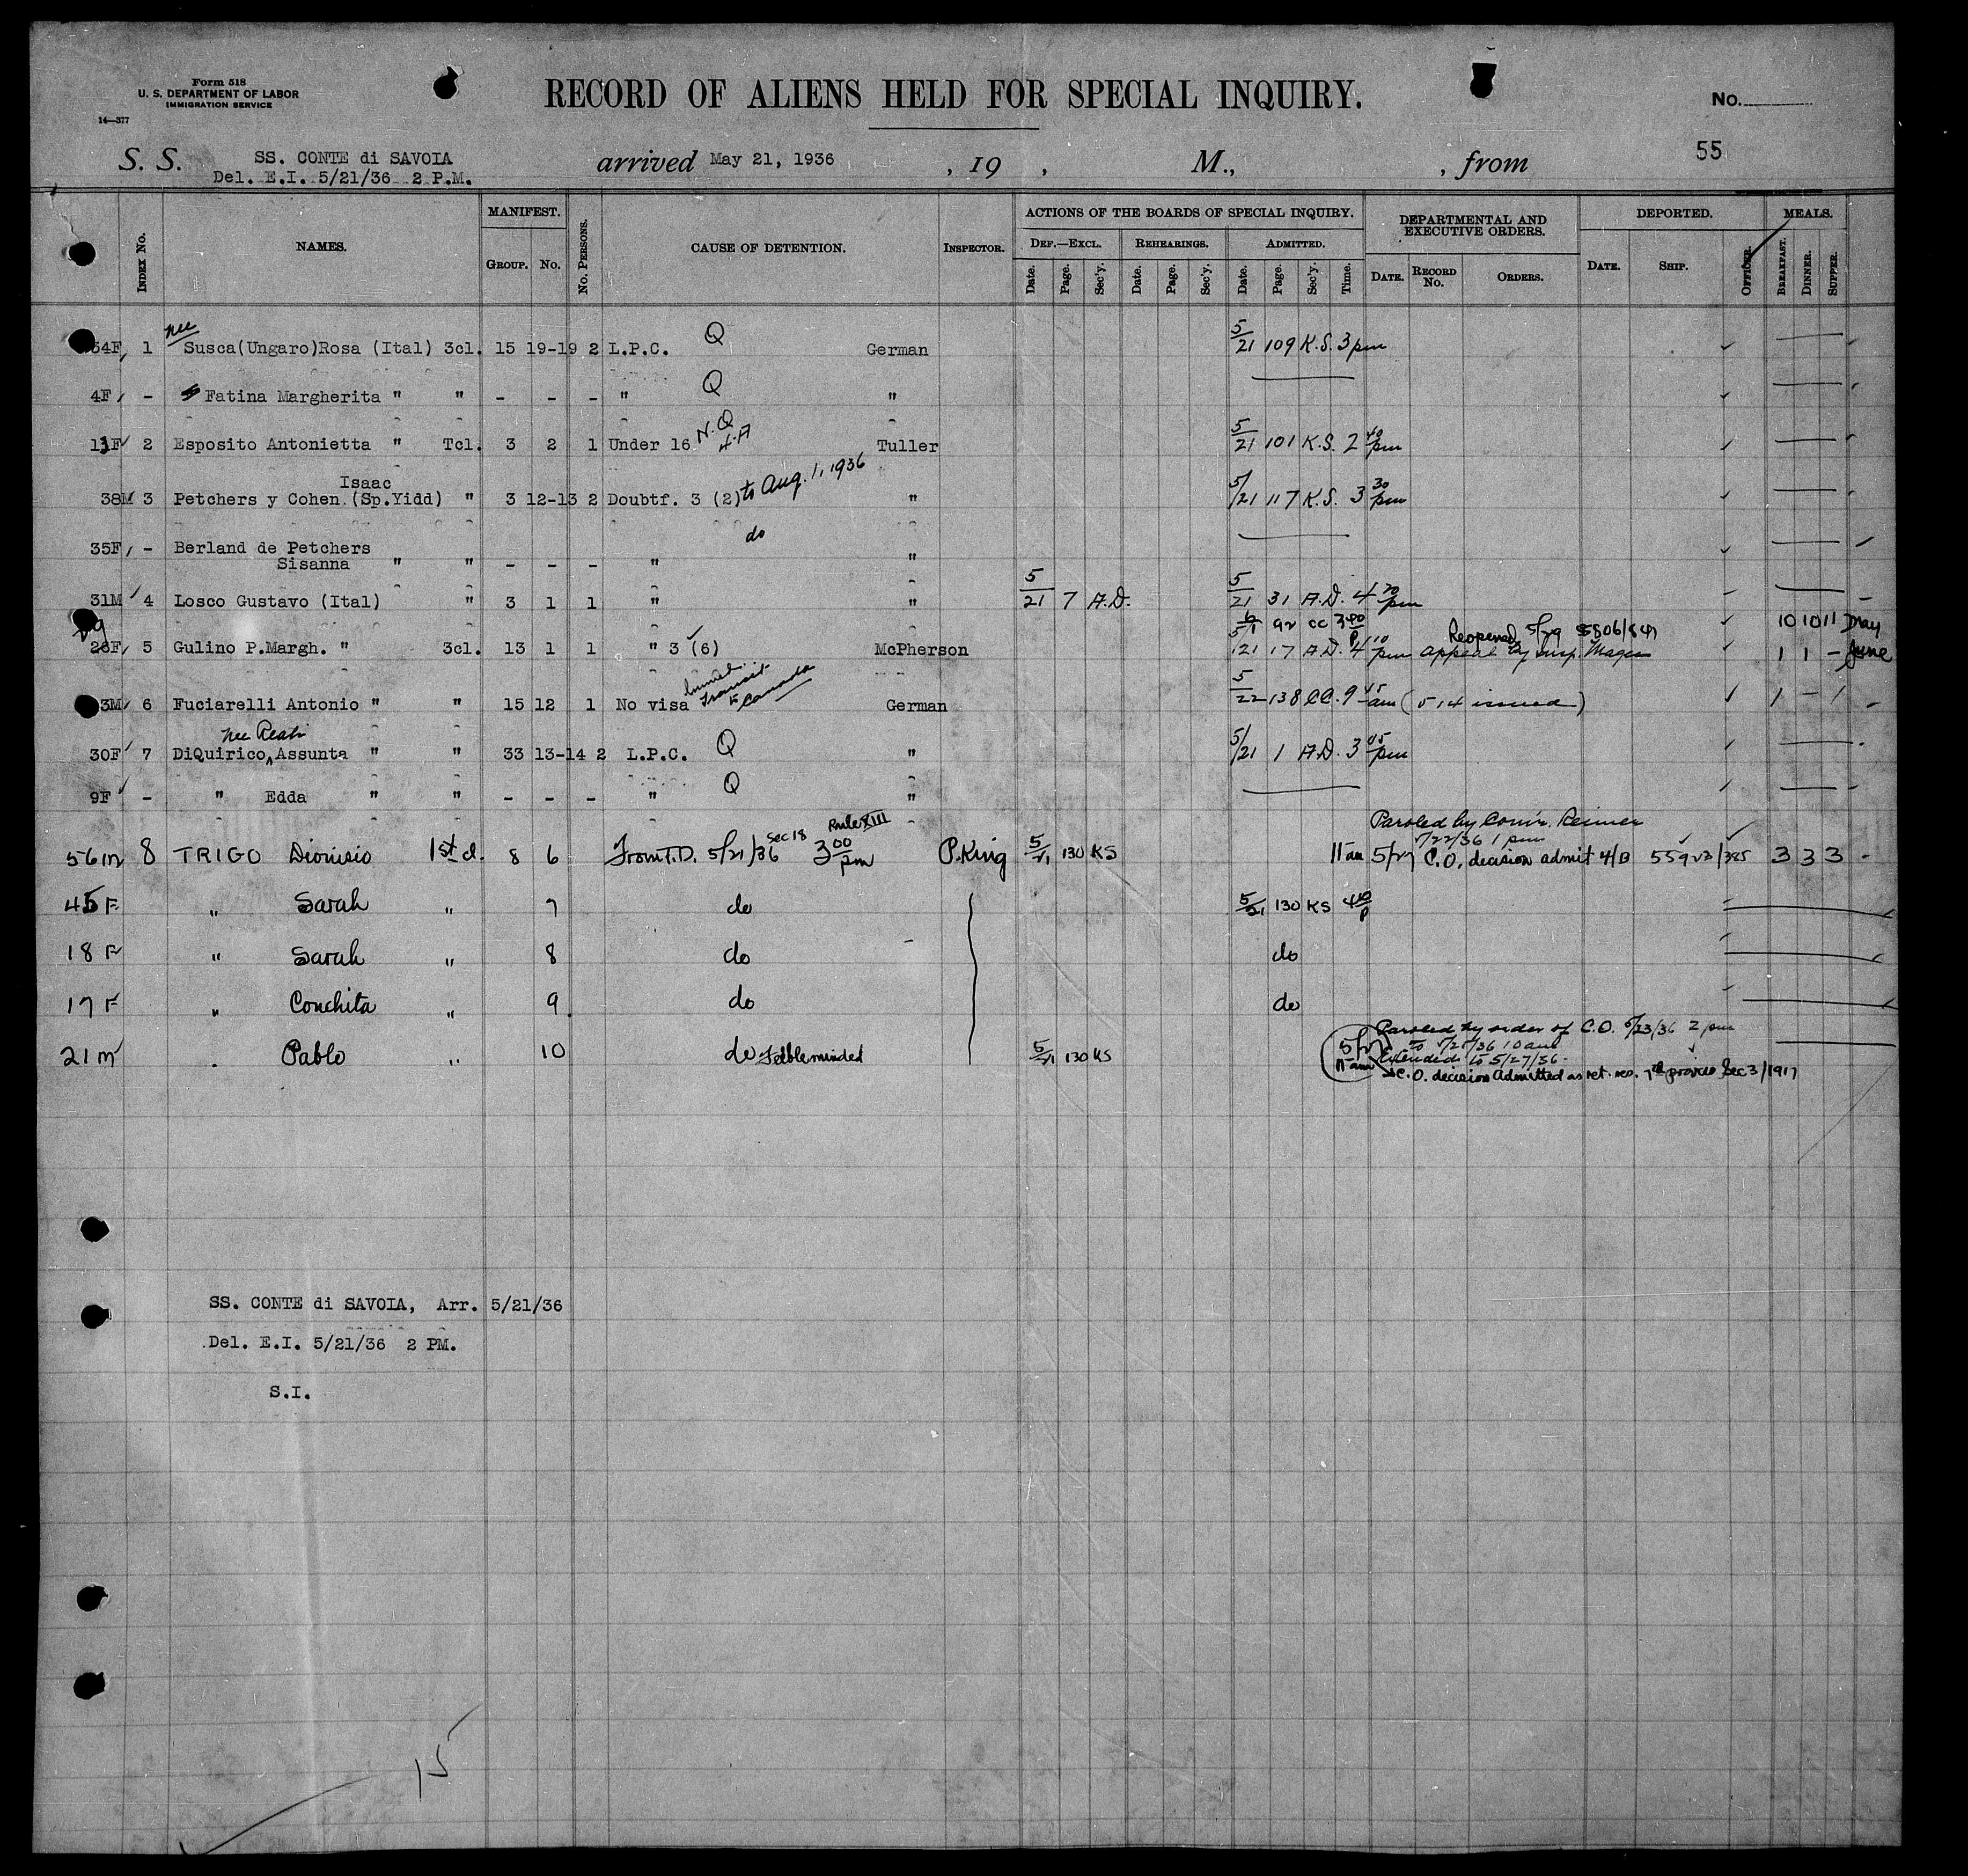 Form 518
U. S. DEPARTMENT OF LABOR
IMMIGRATION SERVICE
14—377
RECORD OF ALIENS HELD FOR SPECIAL INQUIRY.
No.
55
S. S. SS. CONTE di SAVOIA arrived May 21, 1936 , 19 , M., , from
Del. E.I. 5/21/36 2 P.M.
INDEX No. NAMES. MANIFEST. GROUP. No. No. PERSONS. CAUSE OF DETENTION. INSPECTOR. ACTIONS OF THE BOARDS OF SPECIAL INQUIRY. DEPARTMENTAL AND EXECUTIVE ORDERS. DEPORTED. MEALS.
DEF.—EXCL. REHEARINGS. ADMITTED.
Date. Page. Sec'y. Date. Page. Sec'y. Date. Page. Sec'y. Time. DATE. RECORD No. ORDERS. DATE. SHIP. OFFICER. BREAKFAST. DINNER. SUPPER.
nee
54F 1 Susca(Ungaro)Rosa (Ital) 3cl. 15 19-19 2 L.P.C. Q German 5/21 109 K.S. 3 pm
4F - Fatina Margherita " " - - - " Q "
11F 2 Esposito Antonietta " Tcl. 3 2 1 Under 16 N.Q Tuller 5/21 101 K.S. 2 40 pm
Isaac
38M 3 Petchers y Cohen (Sp.Yidd) " 3 12-13 2 Doubtf. 3 (2) to Aug. 1, 1936 " 5/21 117 K.S. 3 30 pm
35F - Berland de Petchers do
Sisanna " " - - - " "
31M 4 Losco Gustavo (Ital) " 3 1 1 " " 5/21 7 A.D. 5/21 31 A.D. 4 pm
6/1 92 CC 3 40 P Reopened 5/29 10 10 11 May
28F 5 Gulino P.Margh. " 3cl. 13 1 1 " 3 (6) McPherson 5/21 17 A.D. 4 10 pm appeal by insp. 1 1 - June
29
3M 6 Fuciarelli Antonio " " 15 12 1 No visa Transit to Canada German 5/22 138 CC. 9 45 am (514 issued) 1 - 1
nee
30F 7 DiQuirico, Assunta " " 33 13-14 2 L.P.C. Q " 5/21 1 A.D. 3 45 pm
9F - " Edda " " - - - " Q "
Paroled by Com'r. Reimer
5/22/36 1 pm
56 m 8 TRIGO Dionisio 1st cl. 8 6 From T.D. 5/21/36 Sec 18 Rule XIII 3 00 pm P. King 5/21 130 KS 11 am 5/27 C.O. decision admit 4/B 3 3 3
45 F " Sarah " 7 do 5/21 130 KS 4 40 P
18 F " Sarah " 8 do do
17 F " Conchita " 9 do do
Paroled by order of C.O. 5/23/36 2 pm
21 m " Pablo " 10 do Feebleminded 5/21 130 KS 5/27 11 am to 5/25/36 10 am
Extended to 5/27/36.
C.O. decision Admitted as ret. res. 7th proviso Sec 3/1917
SS. CONTE di SAVOIA, Arr. 5/21/36
Del. E.I. 5/21/36 2 PM.
S.I.
15